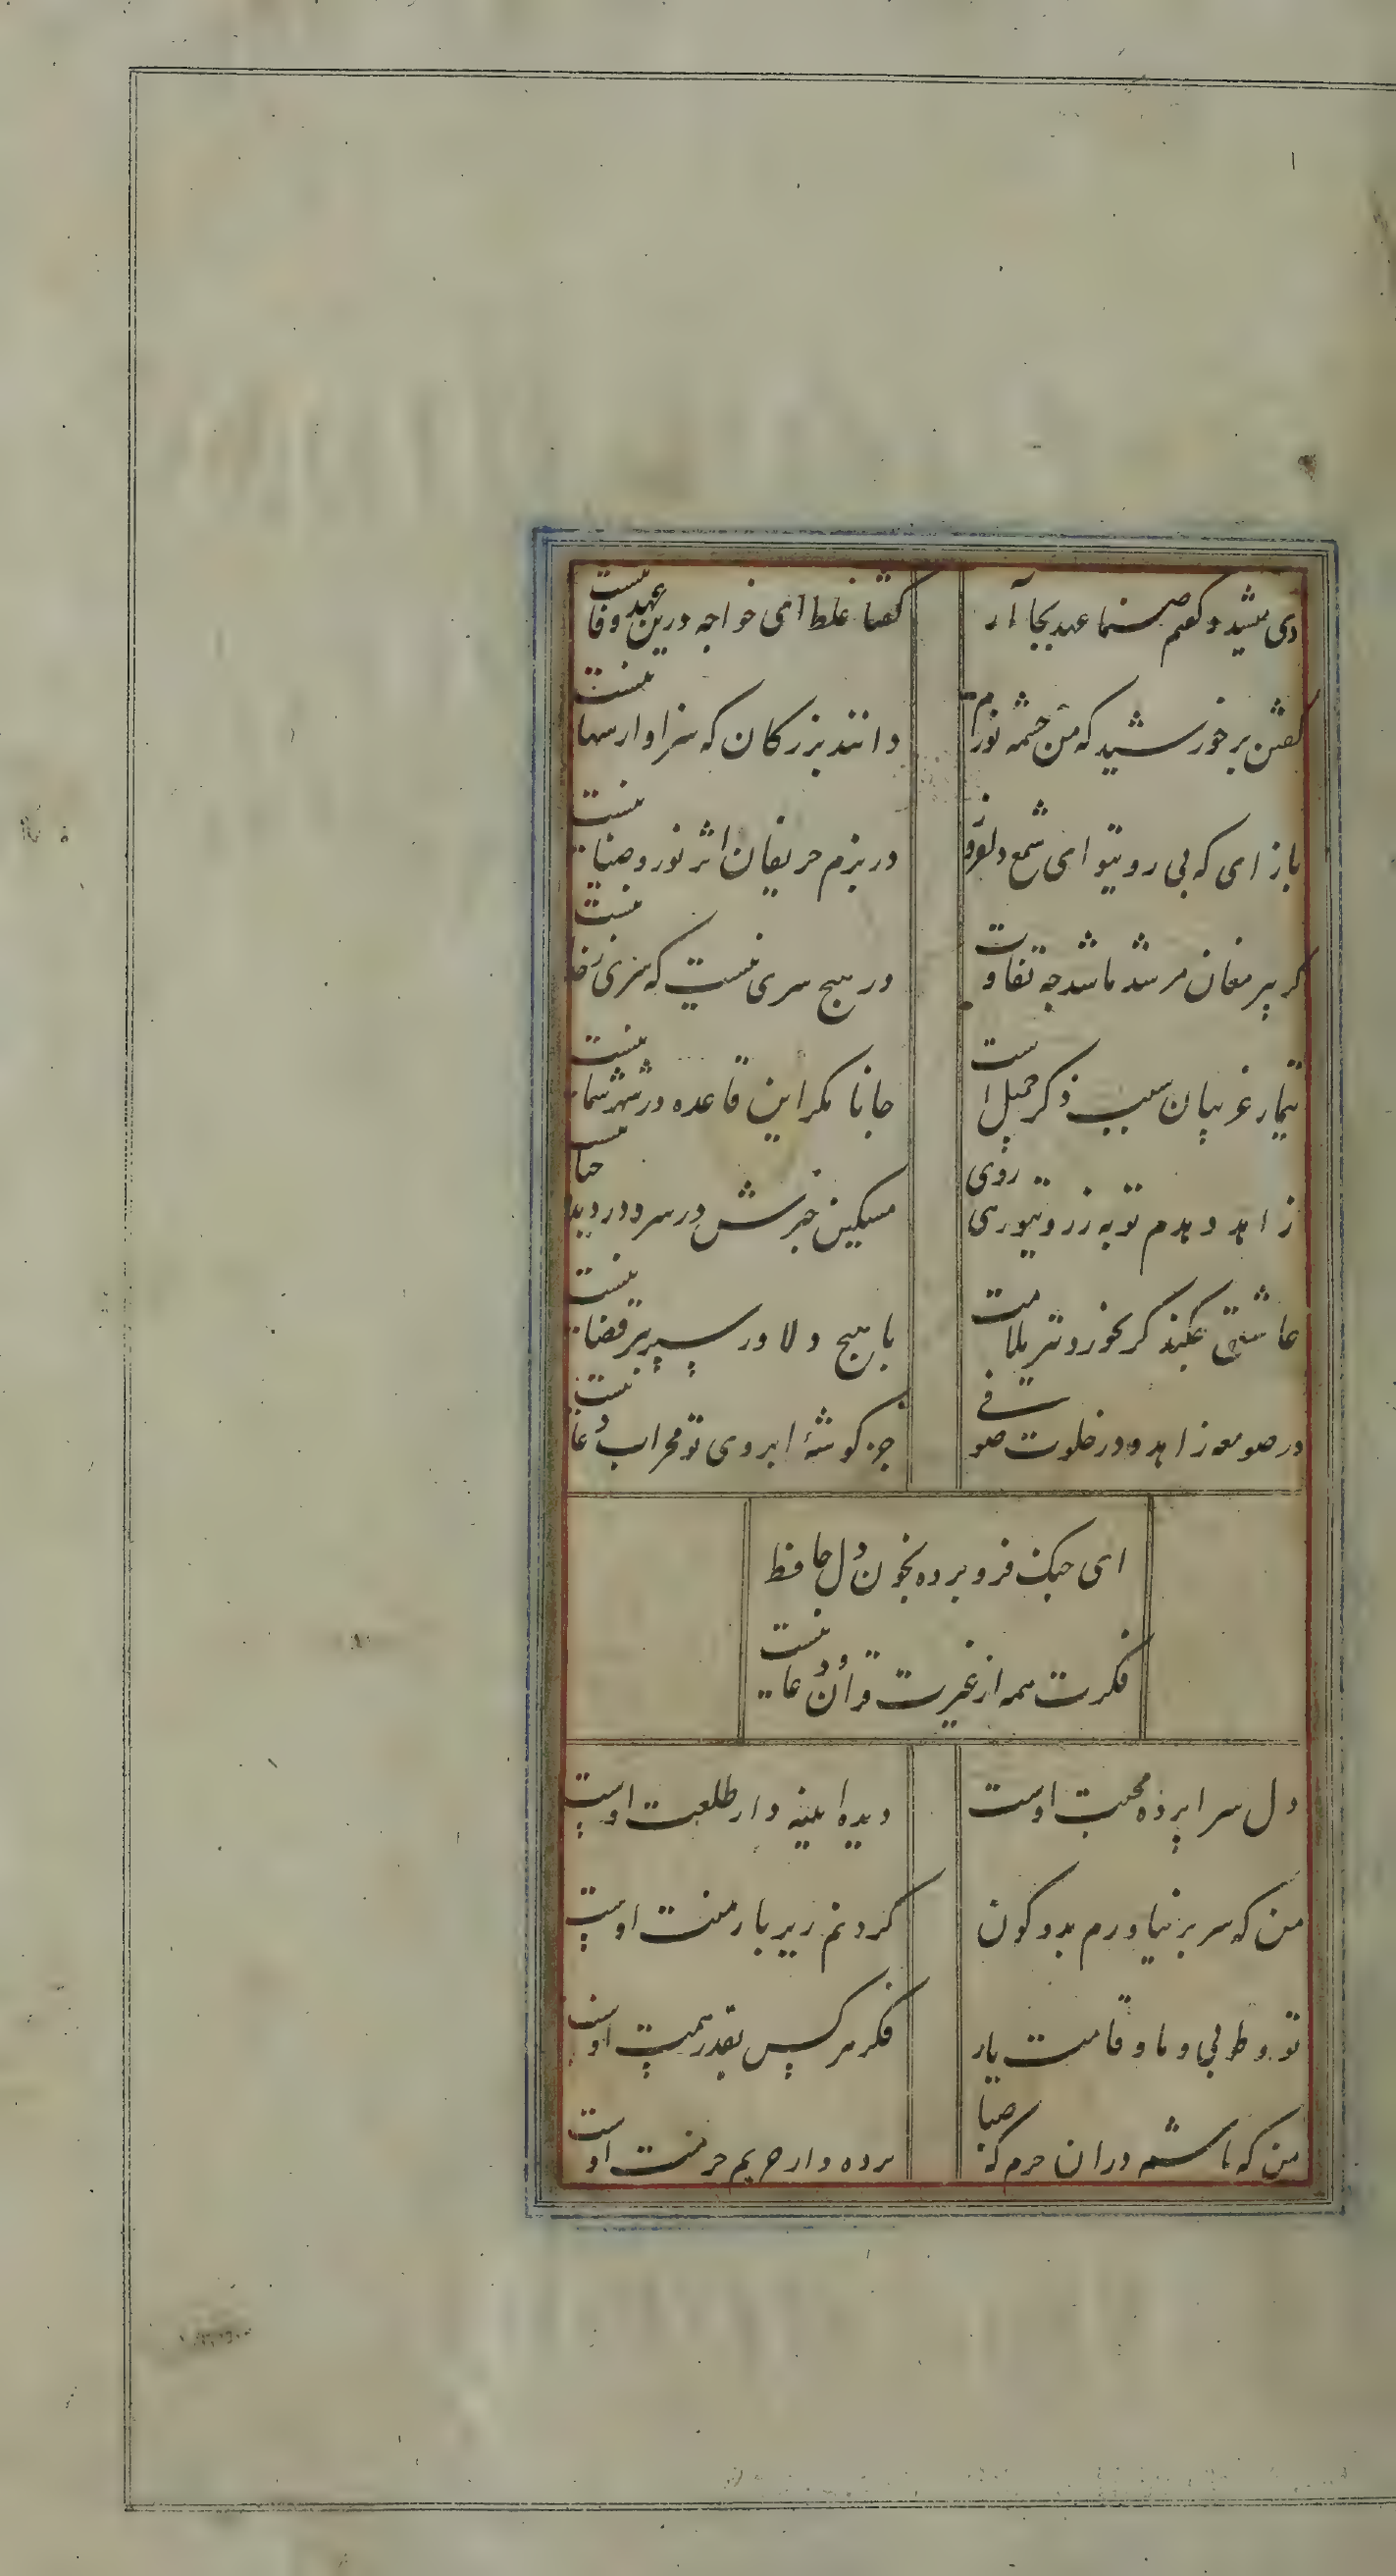 دی میشد و گفتم صنما عهد بجا آر
گفتا غلط ای خواجه درین عهد وفا نیست
گفتن بر خورشید که من چشمه نورم
دانند بزرگان که سزاوار سها نیست
باز ای که بی روی تو ای شمع دلفروز
در بزم حریفان اثر نور و ضیا نیست
گر پیر مغان مرشد ما شد چه تفاوت
در هیچ سری نیست که سری ز خدا نیست
تیمار غریبان سبب ذکر جمیل است
جانا مگر این قاعده در شهر شما نیست
زاهد دهدم توبه ز روی تو زهی روی
مسکین خبرش در سر و در دیده حیا نیست
عاشق چکند گر نخورد تیر ملامت
با هیچ دلاور سپر تیر قضا نیست
در صومعه زاهد و در خلوت صوفی
جز گوشۀ ابروی تو محراب دعا نیست
ای چنگ فرو برده بخون دل حافظ
فکرت همه از غیرت قرآن و دعا نیست
دل سراپرده محبت اوست
دیده اینه دار طلعت اوست
من که سر بر نیاورم بدو کون
گردنم زیر بار منت اوست
تو و طوبی و ما و قامت یار
فکر هر کس بقدر همت اوست
من که باشم دران حرم که صبا
پرده دار حریم حرمت اوست